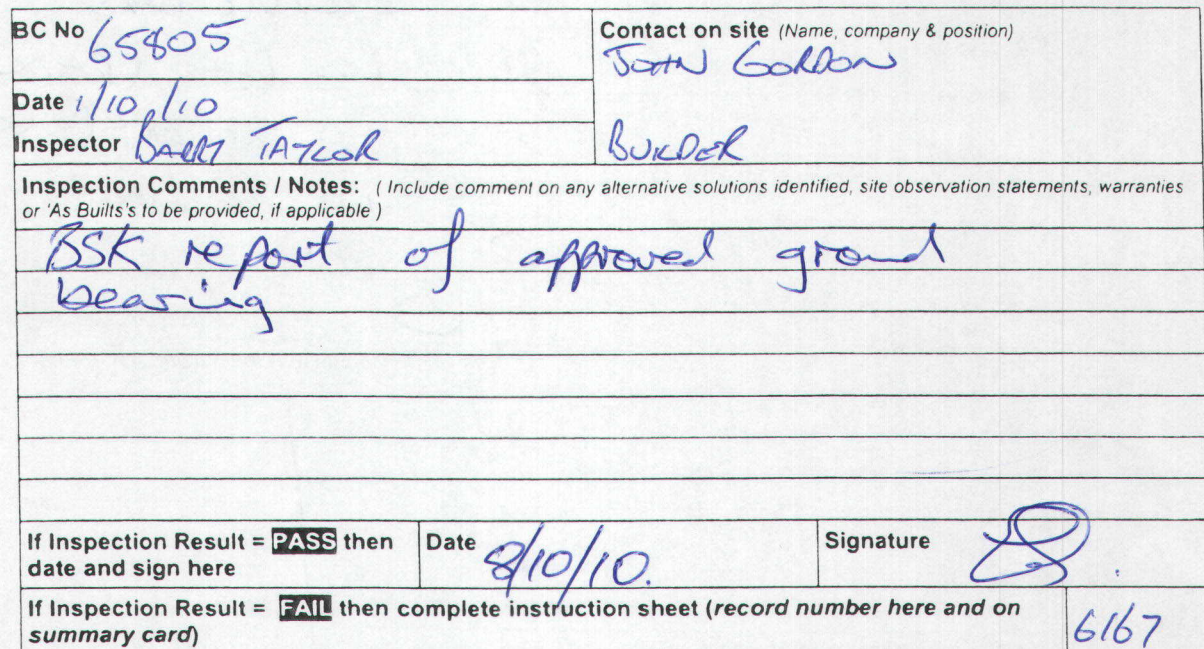 BC No 65805
Contact on site (Name, company & position)
JOHN GORDON
Date 1/10/10
Inspector BARRY TAYLOR
BUILDER
Inspection Comments / Notes: ( Include comment on any alternative solutions identified, site observation statements, warranties
or 'As Builts's to be provided, if applicable )
BSK report of approved ground
bearing
If Inspection Result = PASS then
date and sign here
Date 8/10/10.
Signature
If Inspection Result = FAIL then complete instruction sheet (record number here and on
summary card)
6167